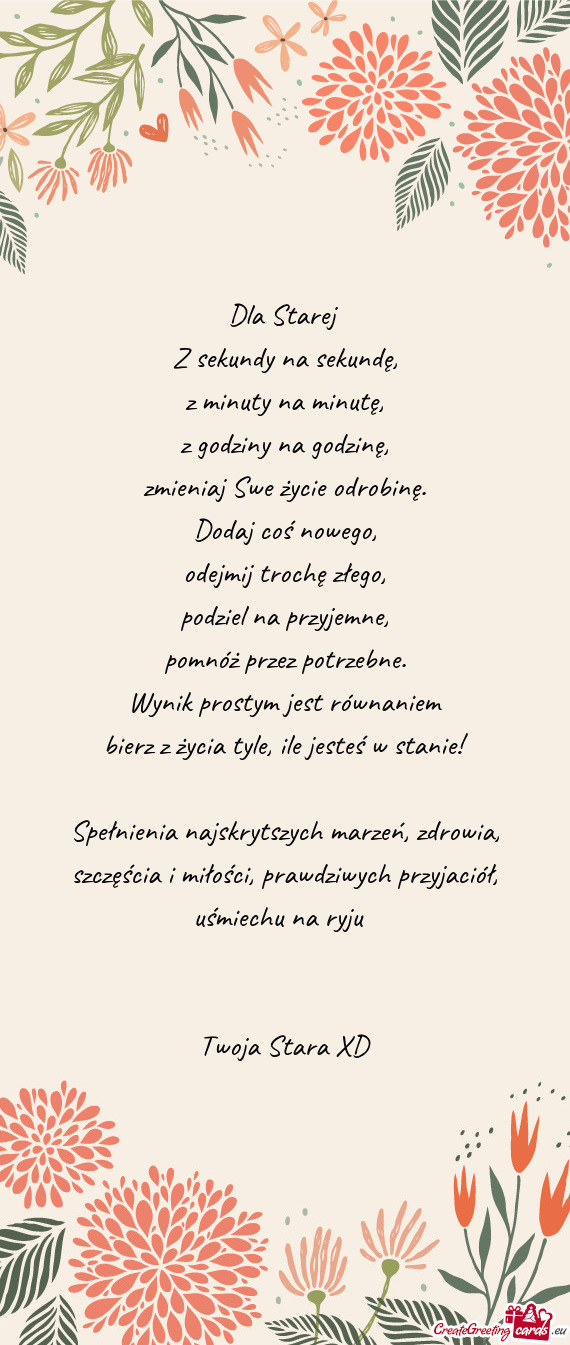 Dla Starej
Z sekundy na sekundę,
z minuty na minutę,
z godziny na godzinę,
zmieniaj Swe życie odrobinę.
Dodaj coś nowego,
odejmij trochę złego,
podziel na przyjemne,
pomnóż przez potrzebne.
Wynik prostym jest równaniem
bierz z życia tyle, ile jesteś w stanie!
Spełnienia najskrytszych marzeń, zdrowia,
szczęścia i miłości, prawdziwych przyjaciół,
uśmiechu na ryju
Twoja Stara XD
CreateGreeting cards .eu